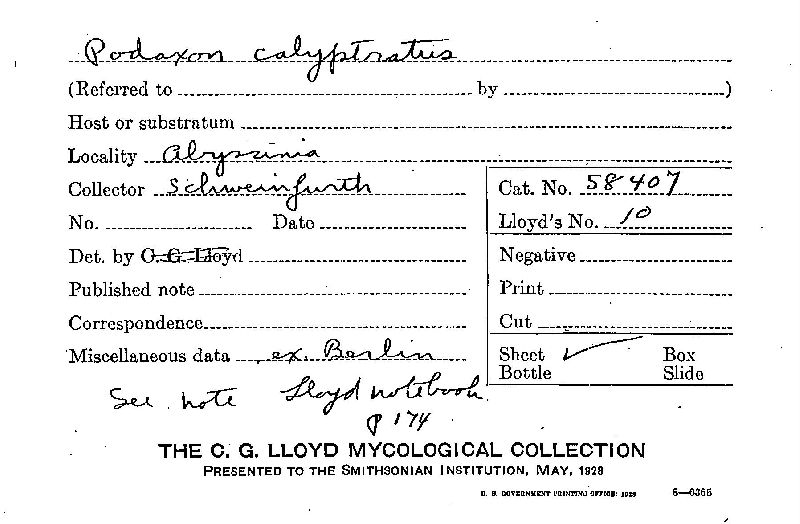 Podaxon calyptratus
(Referred to by )
Host or substratum
Locality Abyssinia
Collector Schweinfurth
Cat. No. 58407
No. Date
Lloyd's No. 10
Det. by C. G. Lloyd
Negative
Published note
Print
Correspondence
Cut
Miscellaneous data ex. Berlin
Sheet ✓ Box
Bottle Slide
See note Lloyd notebook
p 174
THE C. G. LLOYD MYCOLOGICAL COLLECTION
PRESENTED TO THE SMITHSONIAN INSTITUTION, MAY, 1928
U. S. GOVERNMENT PRINTING OFFICE: 1929 6—6366